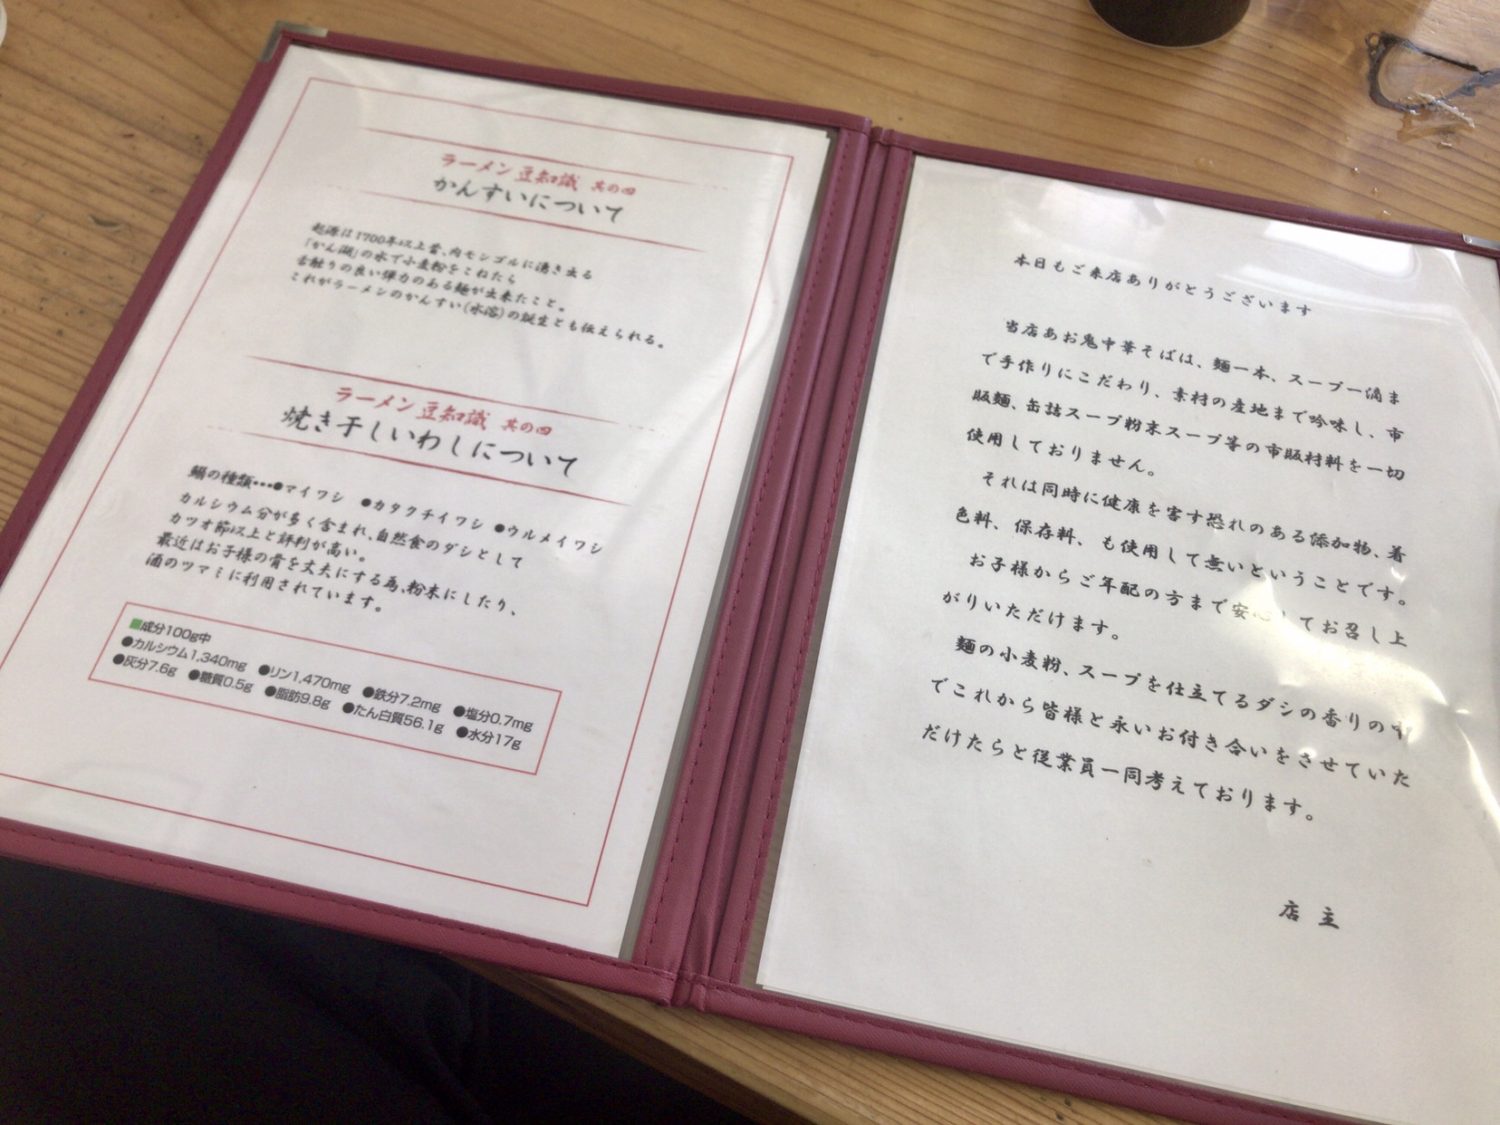 ラーメン 豆知識 其の四
かんすいについて
起源は1700年以上昔、内モンゴルに湧き出る
「かん湖」の水で小麦粉をこねたら
舌触りの良い弾力のある麺が出来たこと。
これがラーメンのかんすい(水溶)の誕生とも伝えられる。
ラーメン 豆知識 其の四
焼き干しいわしについて
鰯の種類•••●マイワシ ●カタクチイワシ ●ウルメイワシ
カルシウム分が多く含まれ、自然食のダシとして
カツオ節以上と評判が高い。
最近はお子様の骨を丈夫にする為、粉末にしたり、
酒のツマミに利用されています。
■成分100g中
●カルシウム1,340mg ●リン1,470mg ●鉄分7.2mg ●塩分0.7mg
●灰分7.6g ●糖質0.5g ●脂肪9.8g ●たん白質56.1g ●水分17g
本日もご来店ありがとうございます
当店あお鬼中華そばは、麺一本、スープ一滴ま
で手作りにこだわり、素材の産地まで吟味し、市
販麺、缶詰スープ粉末スープ等の市販材料を一切
使用しておりません。
それは同時に健康を害す恐れのある添加物、着
色料、保存料、も使用して無いということです。
お子様からご年配の方まで安心してお召し上
がりいただけます。
麺の小麦粉、スープを仕立てるダシの香りの中
でこれから皆様と永いお付き合いをさせていた
だけたらと従業員一同考えております。
店主